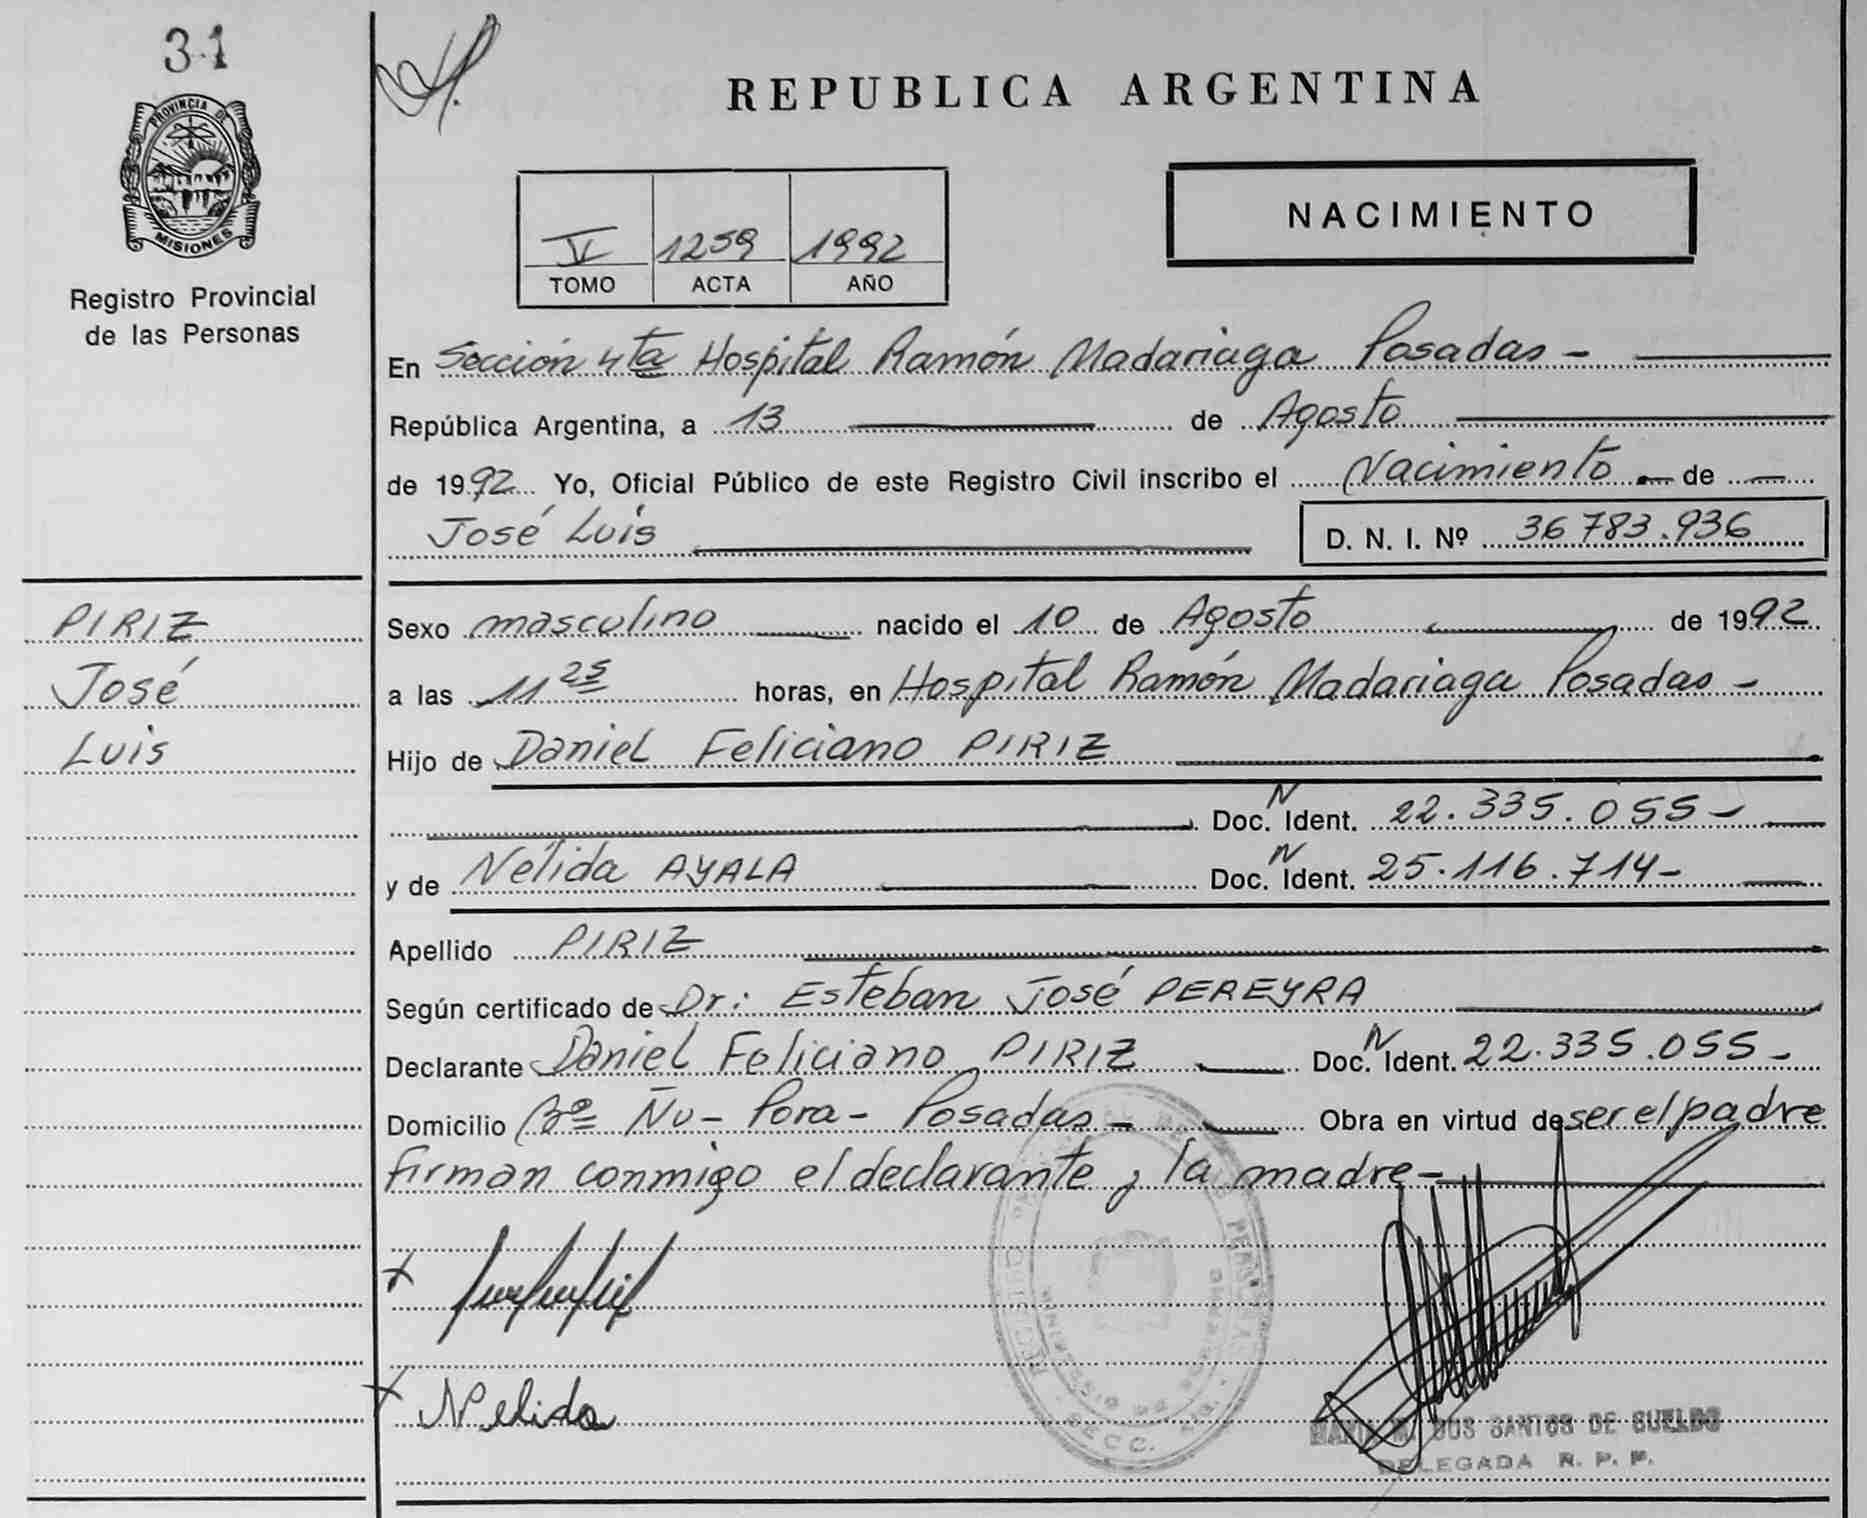 31
PROVINCIA DE
MISIONES
Registro Provincial
de las Personas
REPUBLICA ARGENTINA
V 1259 1992
TOMO ACTA AÑO
NACIMIENTO
En Sección 4ta Hospital Ramón Madariaga Posadas -
República Argentina, a 13 de Agosto
de 1992 Yo, Oficial Público de este Registro Civil inscribo el Nacimiento de
José Luis D. N. I. Nº 36783.936
PIRIZ
José
Luis
Sexo masculino nacido el 10 de Agosto de 1992
a las 11 25 horas, en Hospital Ramón Madariaga Posadas -
Hijo de Daniel Feliciano PIRIZ
Doc. N Ident. 22.335.055 -
y de Nélida AYALA Doc. N Ident. 25.116.714 -
Apellido PIRIZ
Según certificado de Dr: Esteban José PEREYRA
Declarante Daniel Feliciano PIRIZ Doc. N Ident. 22.335.055 -
Domicilio Bº Ñu - Pora - Posadas - Obra en virtud de ser el padre
firman conmigo el declarante y la madre -
x
x Nelida
SECC.
DOS SANTOS DE SUELDO
DELEGADA R. P. P.